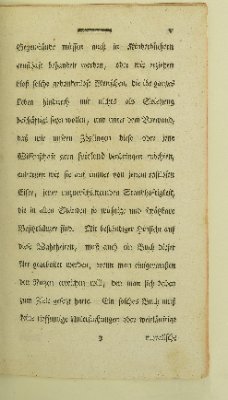 v
Gegenstände müssen auch in Kinderbüchern
ernsthaft behandelt werden, oder wir erziehen
bloß solche gedankenlose Menschen, die ihr ganzes
Leben hindurch mit nichts als Spielzeug
beschäftigt seyn wollen, und unter dem Vorwand,
daß wir unsern Zöglingen diese oder jene
Wissenschaft gern spielend beybringen möchten,
entfernen wir sie auf immer von jenem rastlosen
Eifer, jener unermüdeten Standhaftigkeit,
die in allen Ständen so wichtige und schätzbare
Mit beständiger Hinsicht auf
diese Wahrheiten, muß auch ein Buch dieser
Art gearbeitet werden, wenn man einigermaßen
den Nutzen erreichen will, den man sich dabey
zum Ziele gesetzt hatte. Ein solches Buch muß
keine tiefsinnige Untersuchungen oder weitläufige
moralische